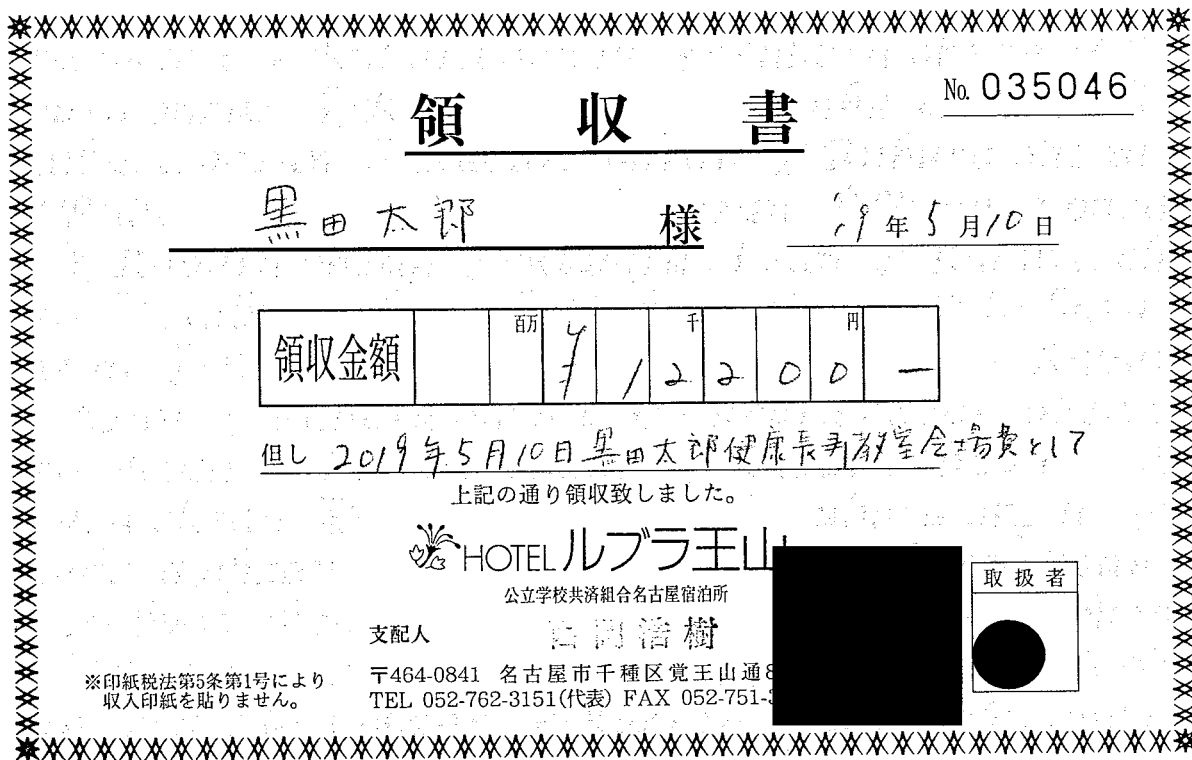 No. 035046
領収書
黒田太郎 様
19年5月10日
領収金額 百万 千 円
¥12200-
但し 2019年5月10日黒田太郎健康長寿教室会場費として
上記の通り領収致しました。
HOTEL ルブラ王山
公立学校共済組合名古屋宿泊所
支配人 浩樹
〒464-0841 名古屋市千種区覚王山通8
TEL 052-762-3151(代表) FAX 052-751-
取扱者
※印紙税法第5条第1号により
収入印紙を貼りません。